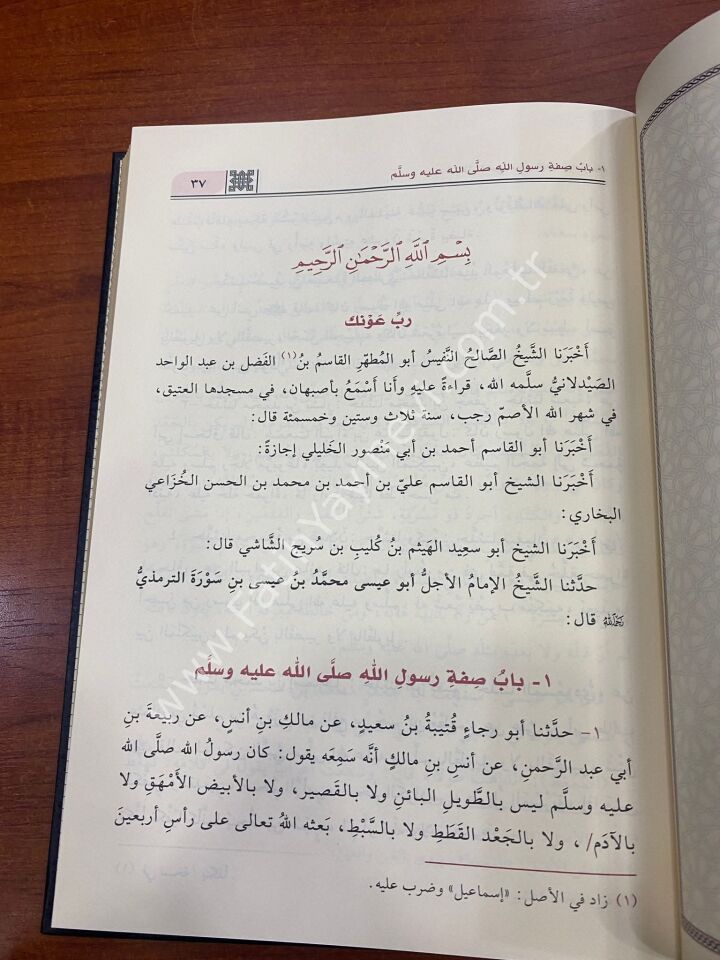 ١- بابُ صِفةِ رسولِ اللهِ صلَّى الله عليه وسلَّم
٣٧
بِسْمِ اللَّهِ الرَّحْمَٰنِ الرَّحِيمِ
ربِّ عَوْنك
أَخْبَرَنا الشَّيخُ الصَّالحُ النَّفيسُ أبو المُطهّرِ القاسمُ بنُ(١) الفَضل بن عبد الواحد
الصَّيْدلانيُّ سلَّمه الله، قراءةً عليهِ وأنا أسْمَعُ بأصبهان، في مسجدها العتيق،
في شهر الله الأصمّ رجب، سنة ثلاث وستين وخمسمئة قال:
أَخْبَرَنا أبو القاسم أحمد بن أبي مَنْصور الخَليلي إجازةً:
أَخْبَرَنا الشيخ أبو القاسم عليّ بن أحمد بن محمد بن الحسن الخُزَاعي
البخاري:
أَخْبَرَنا الشيخ أبو سعيد الهَيثم بنُ كُليب بن سُريج الشَّاشي قال:
حدَّثنا الشَّيخُ الإمامُ الأجلُّ أبو عيسى محمَّدُ بنُ عيسى بنِ سَوْرَةَ الترمذيُّ
رَحِمَهُ اللهُ قال:
١- بابُ صِفةِ رسولِ اللهِ صلَّى الله عليه وسلَّم
١- حدَّثنا أبو رجاءٍ قُتيبةُ بنُ سعيدٍ، عن مالكِ بنِ أنسٍ، عن ربيعةَ بنِ
أبي عبد الرَّحمنِ، عن أنسِ بنِ مالكٍ أنَّه سَمِعَه يقول: كان رسولُ الله صلَّى الله
عليه وسلَّم ليس بالطَّويلِ البائنِ ولا بالقَصير، ولا بالأبيض الأَمْهَقِ ولا
بالآدَم/، ولا بالجَعْد القَطَطِ ولا بالسَّبْطِ، بَعثه اللهُ تعالى على رأسِ أربعينَ
(١) زاد في الأصل: «إسماعيل» وضرب عليه.
www.FatihYayinevi.com.tr